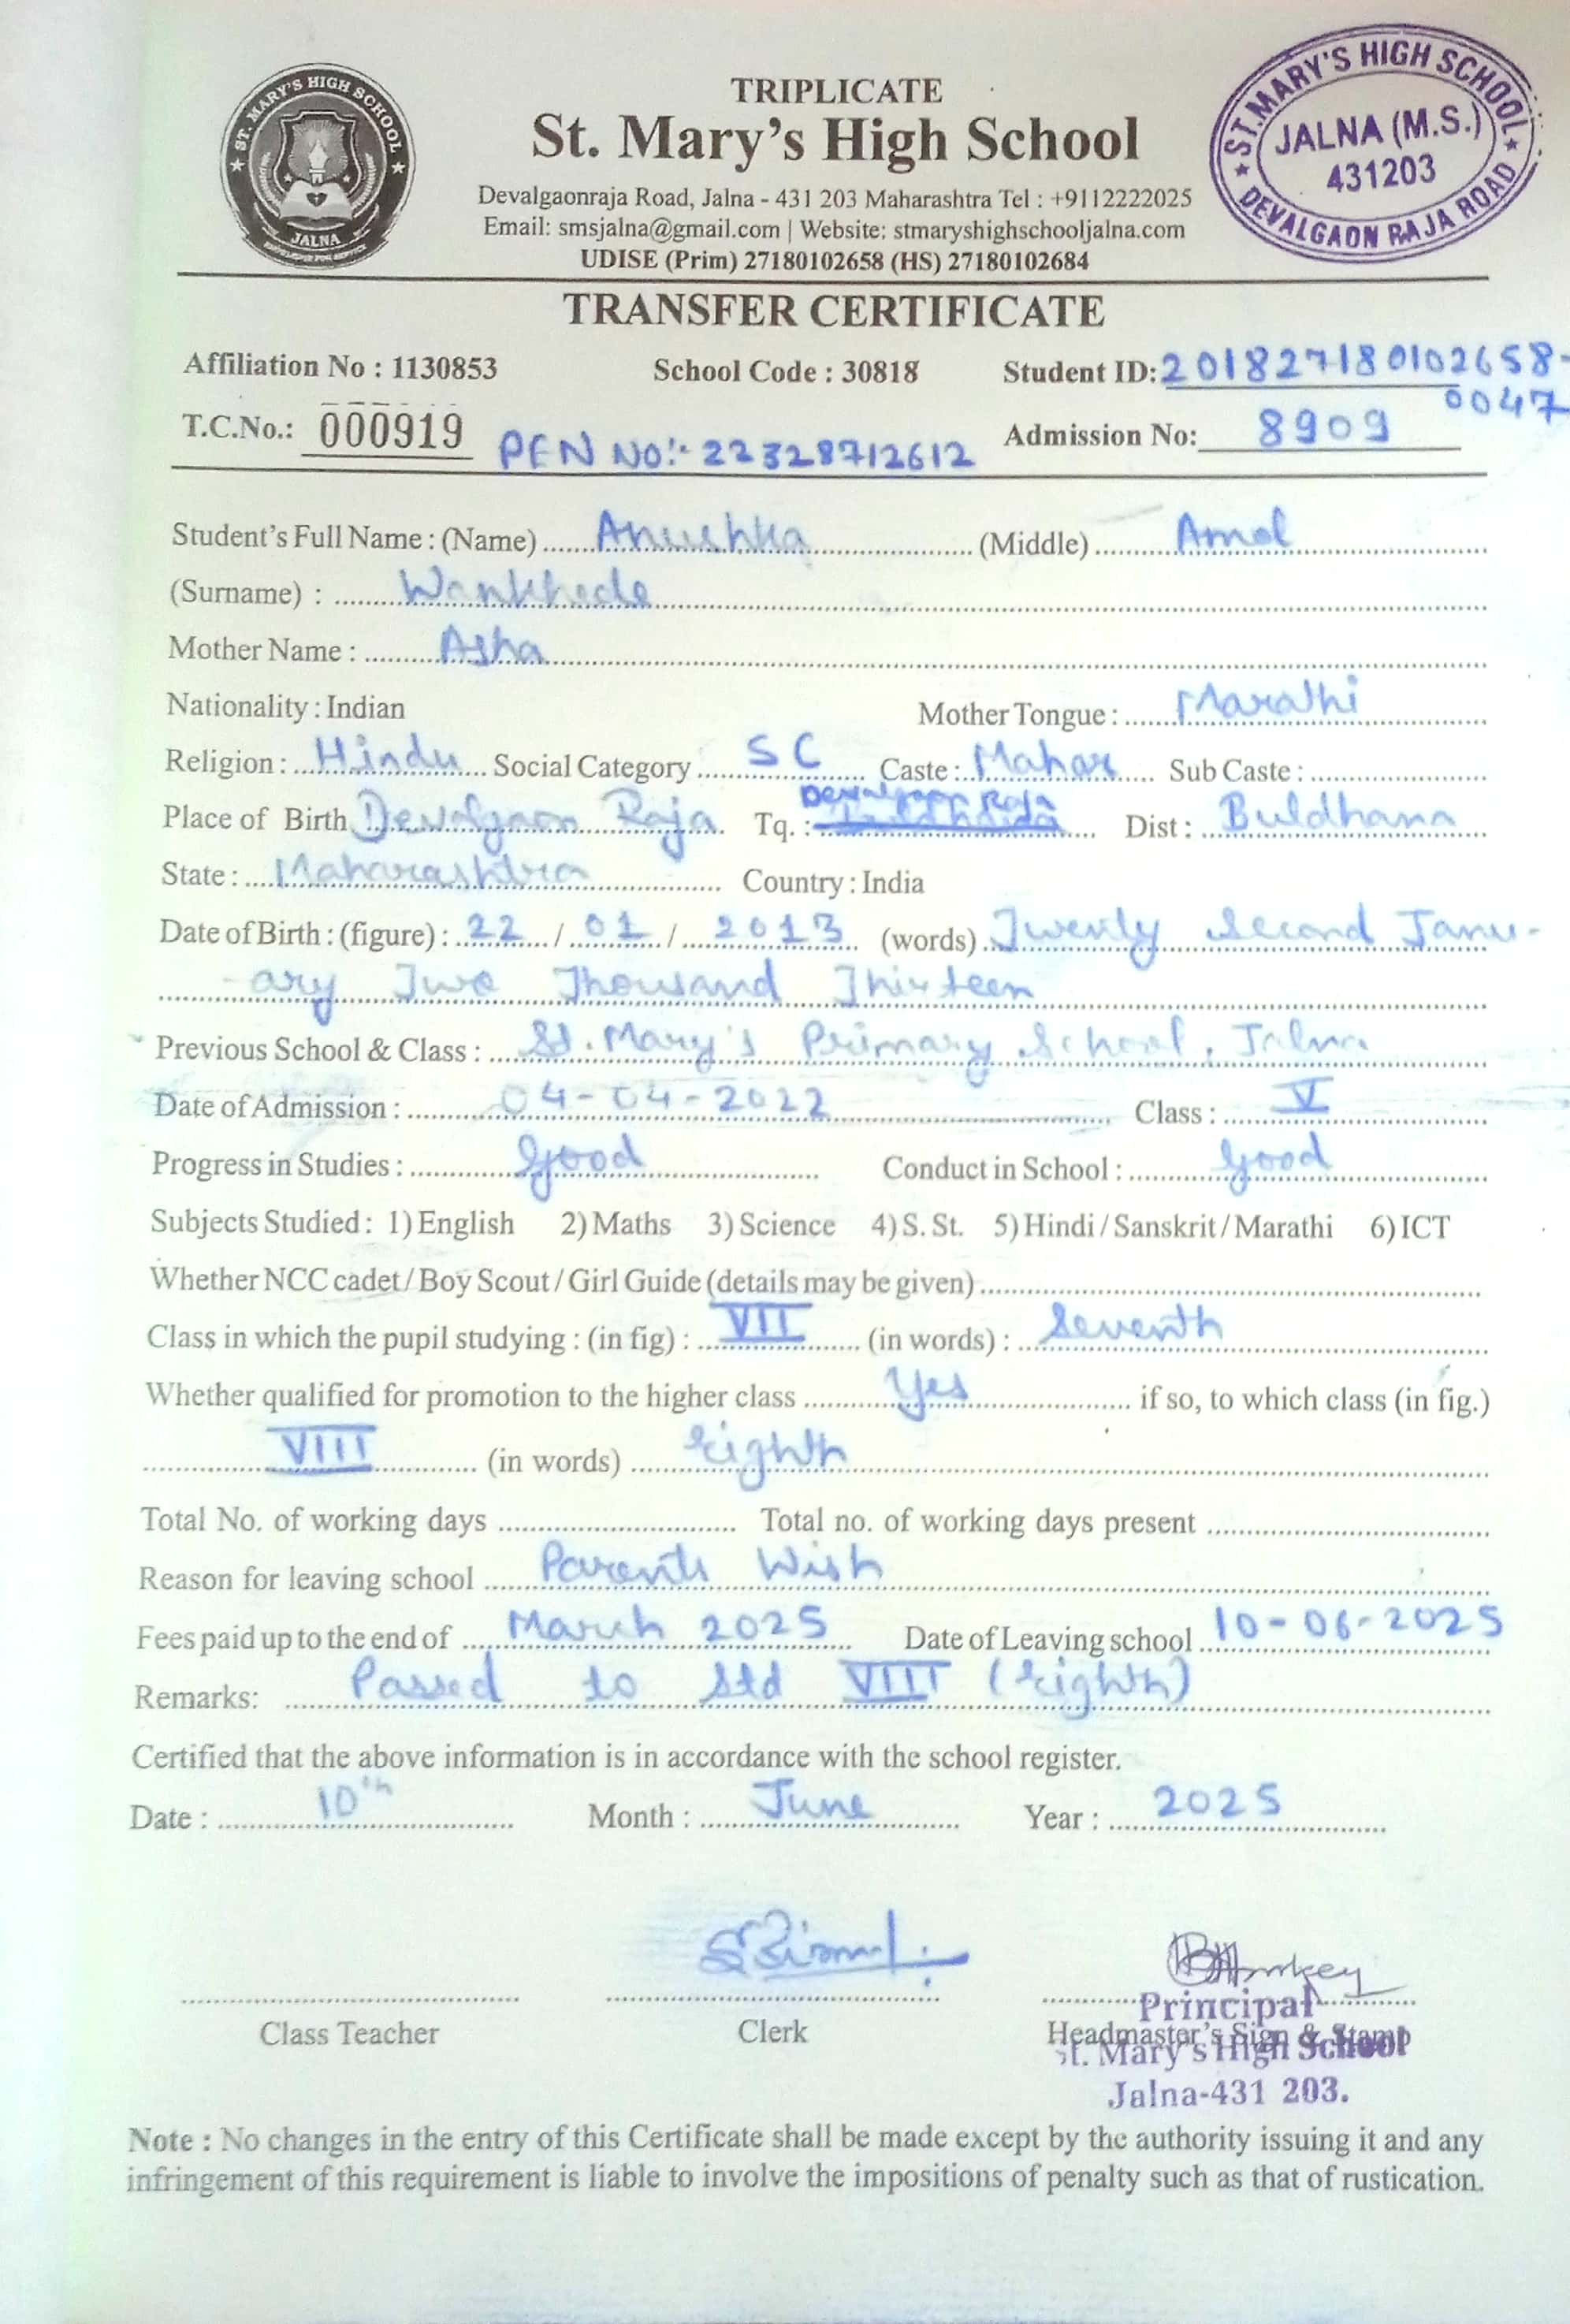 TRIPLICATE
St. Mary's High School
Devalgaonraja Road, Jalna - 431 203 Maharashtra Tel : +9112222025
Email: smsjalna@gmail.com | Website: stmaryshighschooljalna.com
UDISE (Prim) 27180102658 (HS) 27180102684
ST. MARY'S HIGH SCHOOL
JALNA
ST. MARY'S HIGH SCHOOL
JALNA (M.S.)
431203
DEVALGAON RAJA ROAD
TRANSFER CERTIFICATE
Affiliation No : 1130853 School Code : 30818 Student ID: 201827180102658-
0047
T.C.No.: 000919 PEN NO:- 22328712612 Admission No: 8909
Student's Full Name : (Name) Anushka (Middle) Amol
(Surname) : Wankhede
Mother Name : Asha
Nationality : Indian Mother Tongue : Marathi
Religion : Hindu Social Category SC Caste : Mahar Sub Caste :
Place of Birth Dewalgaon Raja Tq. : Dewalgaon Raja Dist : Buldhana
State : Maharashtra Country : India
Date of Birth : (figure) : 22 / 01 / 2013 (words) Twenty Second Janu-
-ary Two Thousand Thirteen
Previous School & Class : St. Mary's Primary School, Jalna
Date of Admission : 04-04-2022 Class : V
Progress in Studies : Good Conduct in School : Good
Subjects Studied : 1) English 2) Maths 3) Science 4) S. St. 5) Hindi / Sanskrit / Marathi 6) ICT
Whether NCC cadet / Boy Scout / Girl Guide (details may be given)
Class in which the pupil studying : (in fig) : VII (in words) : Seventh
Whether qualified for promotion to the higher class Yes if so, to which class (in fig.)
VIII (in words) Eighth
Total No. of working days Total no. of working days present
Reason for leaving school Parents Wish
Fees paid up to the end of March 2025 Date of Leaving school 10-06-2025
Remarks: Passed to Std VIII (Eighth)
Certified that the above information is in accordance with the school register.
Date : 10th Month : June Year : 2025
Class Teacher Clerk Headmaster's Sign & Stamp
Principal
St. Mary's High School
Jalna-431 203.
Note : No changes in the entry of this Certificate shall be made except by the authority issuing it and any
infringement of this requirement is liable to involve the impositions of penalty such as that of rustication.